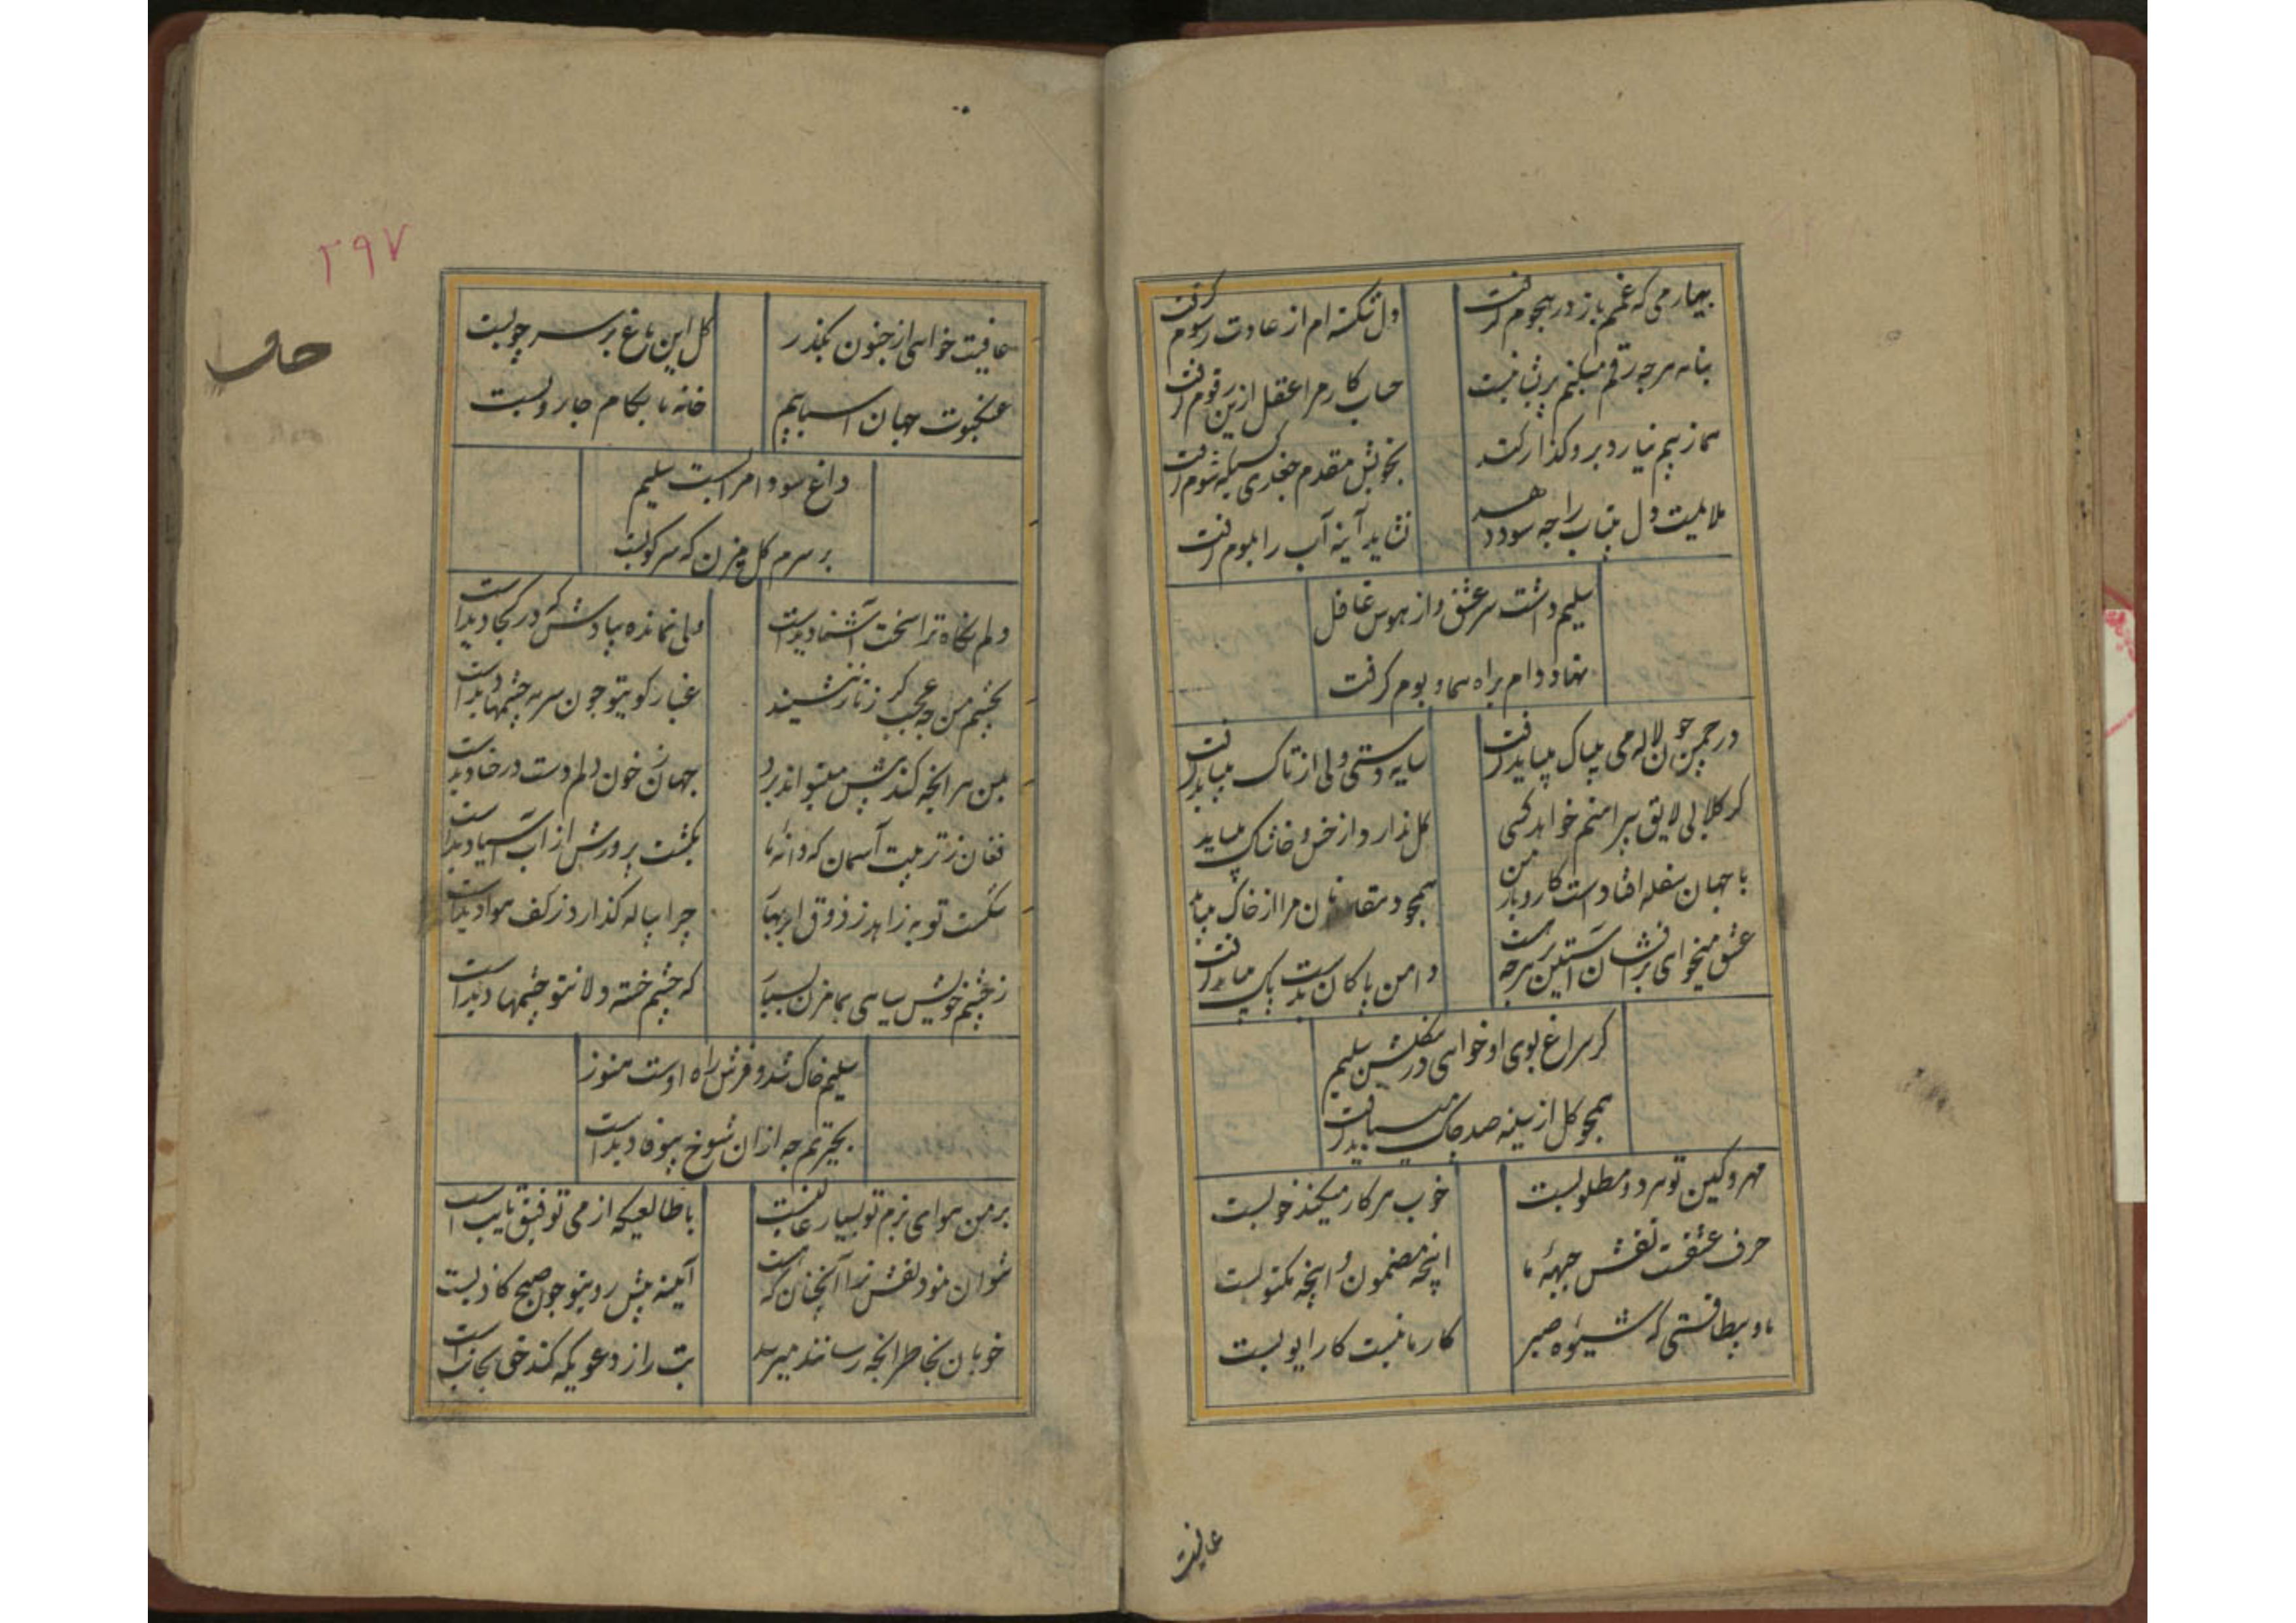 بیار می که غم باز در هجوم گرفت
دل شکسته ام از عادت رسوم گرفت
بنامه هر چه رقم میکنم پریشانیست
حساب کار مرا عقل ازین رقوم گرفت
هما ز بیم نیارد برو گذار کند
بخویش مقدم جغدی کسیکه شوم گرفت
ملایمت دل بیتاب را چه سود دهد
نشاید آینه آب را بموم گرفت
سلیم داشت سر عشق و از هوس غافل
نهاد دام براه هما و بوم گرفت
در چمن چون لاله می بیباک میباید گرفت
سایه دستی ولی از تاک میباید گرفت
گر گلابی لایق پیراهنم خواهد کسی
گل ندارد از خس و خاشاک میباید
با جهان سفله افتادست کار و بار من
همچو دهقانان مرا از خاک میباید
عشق میخواهی برافشان آستین بر هر چه هست
دامن پاکان بدست پاک میباید گرفت
گر سراغ بوی او خواهی درین گلشن سلیم
همچو گل از سینه صد چاک میباید گرفت
مهر و کین تو هر دو مطلوبست
خوب هر کار میکند خوبست
حرف عشقت نقش جبههٔ ما
اینچه مضمون و اینچه مکتوبست
ما و بیطاقتی که شیوهٔ صبر
کار ما نیست کار ایوبست
عافیت
۲۹۷
عافیت خواهی از جنون بگذر
گل این باغ بر سر چوبست
عنکبوت جهان اسبابیم
خانه ما بکام جاروبست
داغ سودا مرا بست سلیم
بر سرم گل مزن که سرکوبست
دلم نگاه ترا سخت آشنا دیداست
ولی نمانده بیادش که در کجا دیداست
بچشم من چه عجب گر ز ناز ننشیند
غبار کویتو چون سرمه چشمها دیداست
بمن هر آنچه کند پیش میتواند برد
جهان ز خون دلم دست در حنا دیداست
فغان ز تربیت آسمان که دانهٔ ما
بکشت پرورش از آب آسیا دیداست
شکست توبه زاهد ز ذوق ابر بهار
چرا پیاله گذارد ز کف هوا دیداست
ز چشم خویش سیاهی بما مزن بسیار
که چشم خسته دلان تو چشمها دیداست
سلیم خاک شد و فرش راه اوست هنوز
بحیرتم چه ازان شوخ بیوفا دیداست
بر من هوای بزم تو بسیار غالبست
با طالعیکه از می توفیق تایب است
نتوان نمود نقش ترا آنچنان که هست
آیینه پیش رویتو چون صبح کاذبست
خوبان بخاطر آنچه رسانند میرسد
بت را ز دعویکه کند حق بجانب است